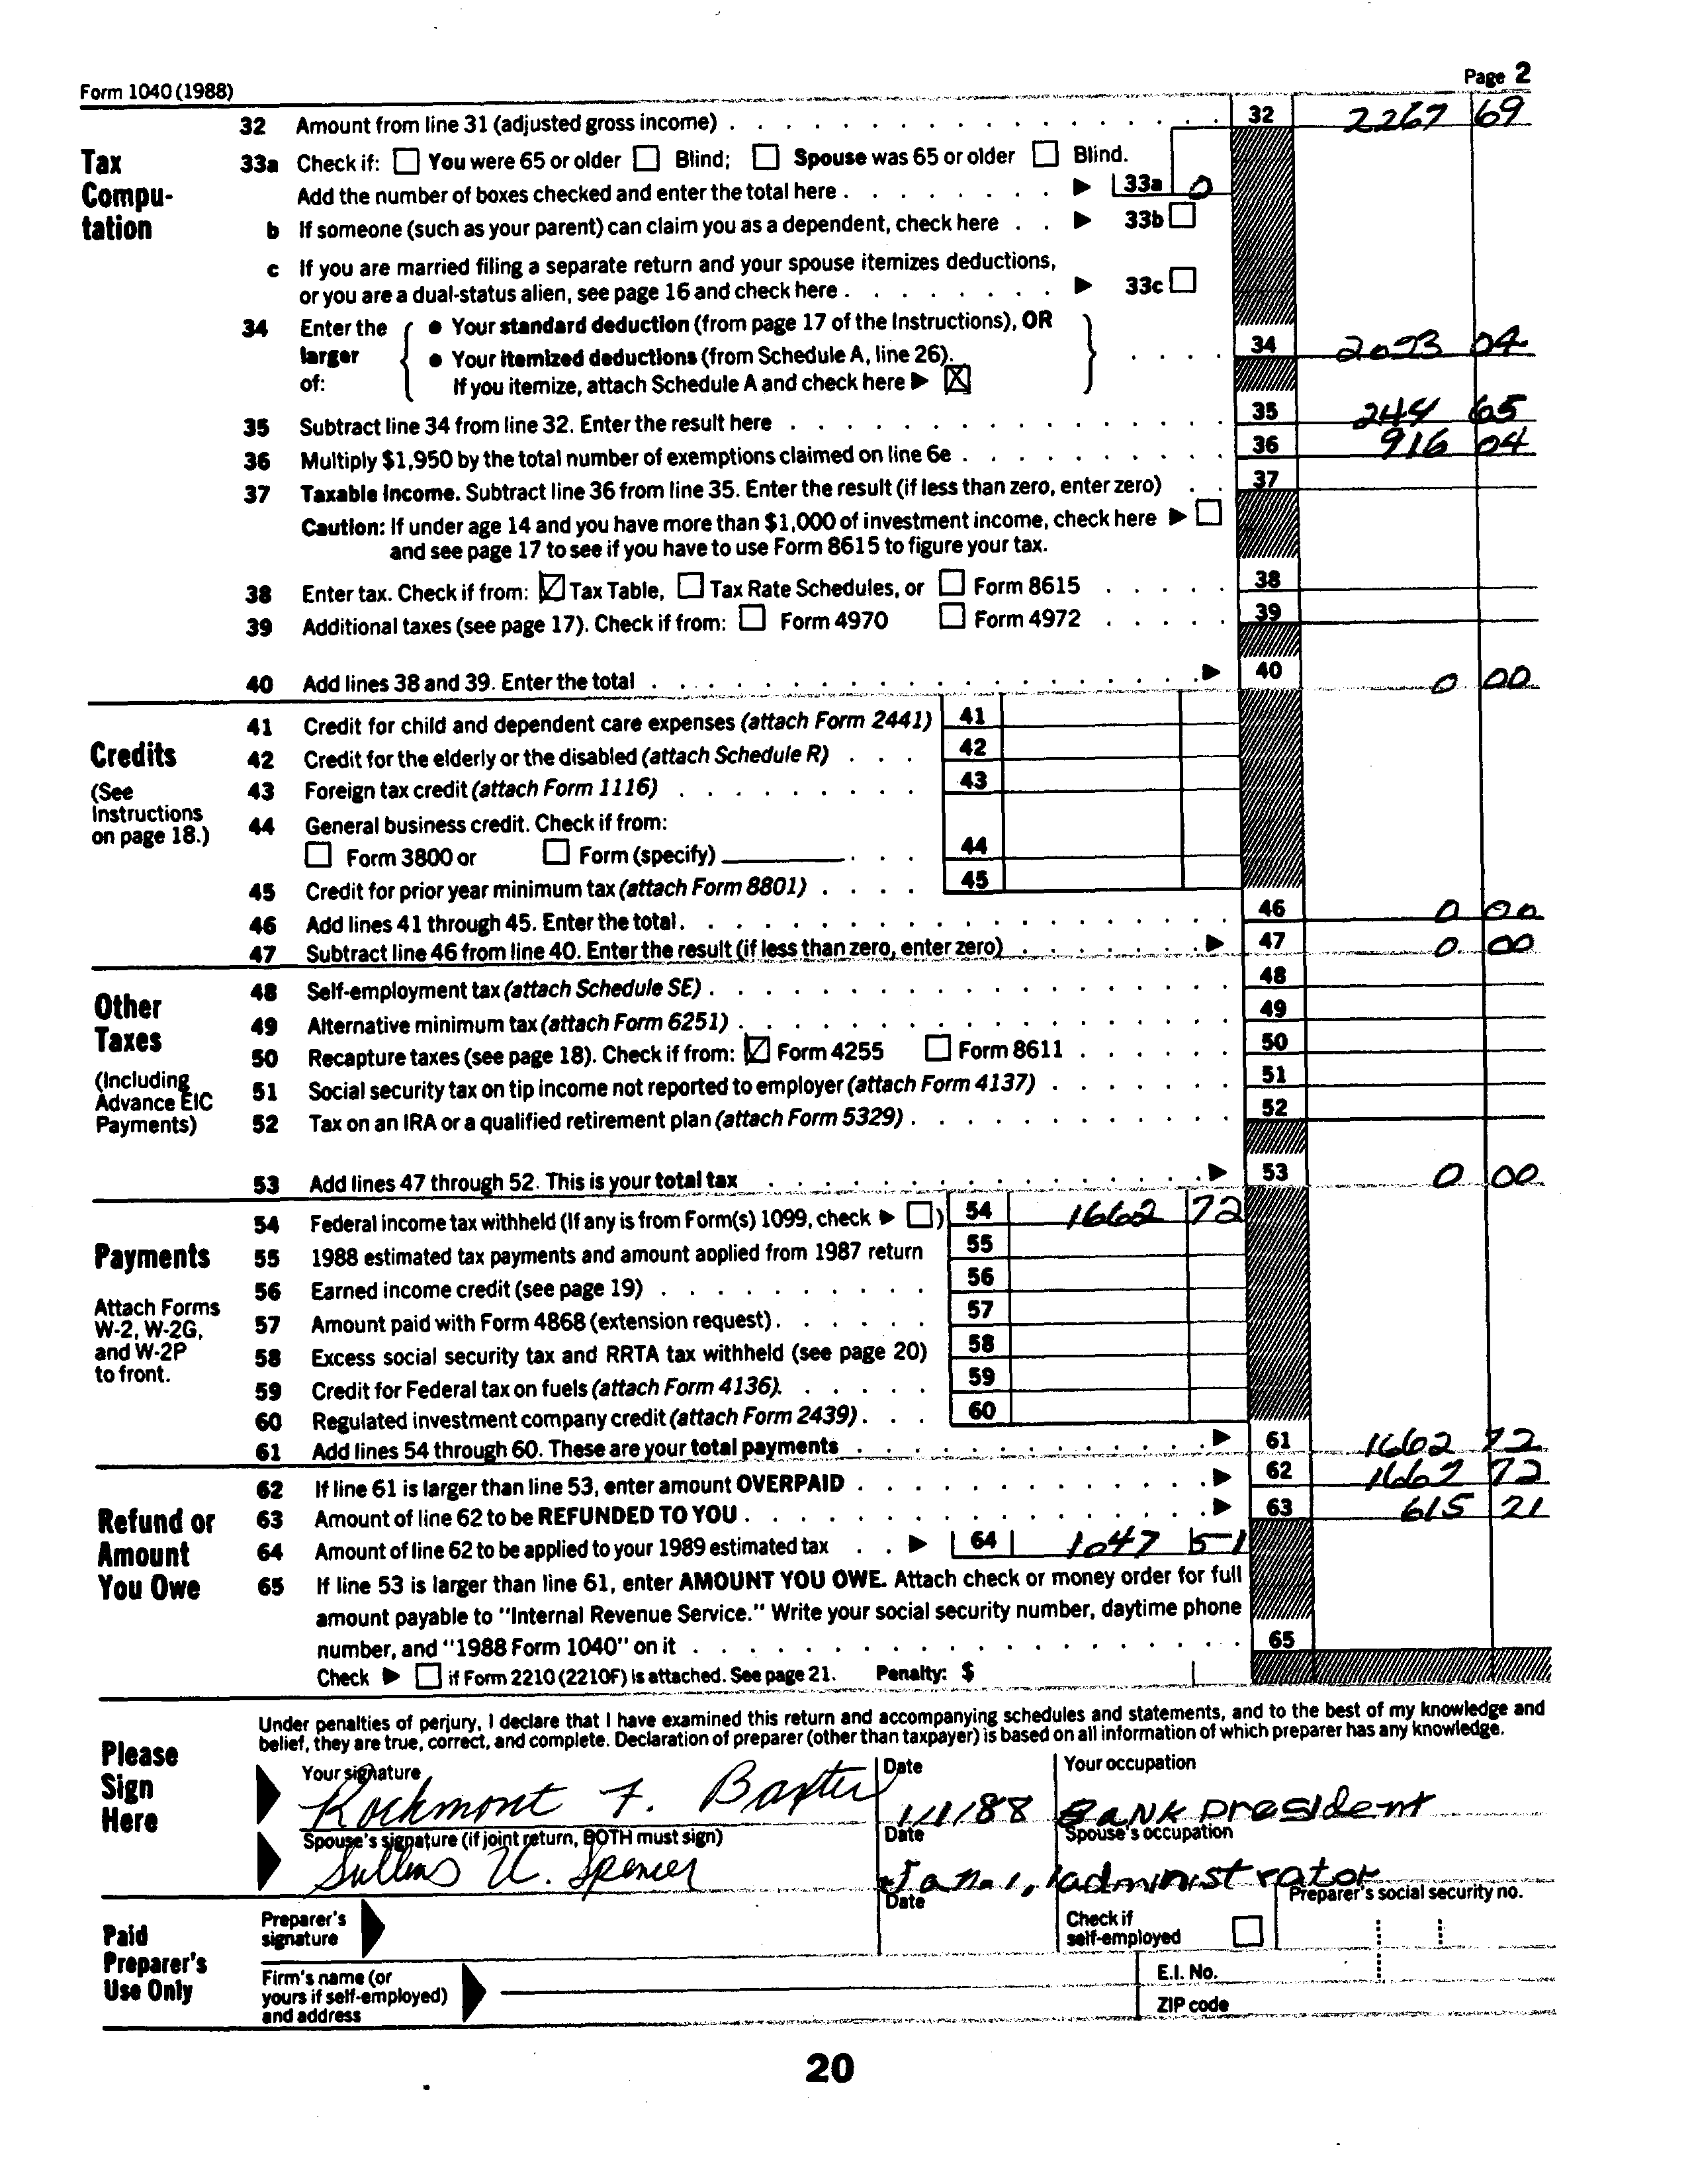 Form 1040 (1988) Page 2
32 Amount from line 31 (adjusted gross income) 32 2267 69
Tax Compu- tation
33a Check if: You were 65 or older Blind; Spouse was 65 or older Blind.
Add the number of boxes checked and enter the total here 33a 0
b If someone (such as your parent) can claim you as a dependent, check here 33b
c If you are married filing a separate return and your spouse itemizes deductions,
or you are a dual-status alien, see page 16 and check here 33c
34 Enter the larger of:
● Your standard deduction (from page 17 of the Instructions), OR
● Your itemized deductions (from Schedule A, line 26). 34 2023 04
If you itemize, attach Schedule A and check here ▶ X
35 Subtract line 34 from line 32. Enter the result here 35 244 65
36 Multiply $1,950 by the total number of exemptions claimed on line 6e 36 916 04
37 Taxable income. Subtract line 36 from line 35. Enter the result (if less than zero, enter zero) 37
Caution: If under age 14 and you have more than $1,000 of investment income, check here ▶
and see page 17 to see if you have to use Form 8615 to figure your tax.
38 Enter tax. Check if from: Tax Table, Tax Rate Schedules, or Form 8615 38
39 Additional taxes (see page 17). Check if from: Form 4970 Form 4972 39
40 Add lines 38 and 39. Enter the total ▶ 40 0 00
Credits
(See Instructions on page 18.)
41 Credit for child and dependent care expenses (attach Form 2441) 41
42 Credit for the elderly or the disabled (attach Schedule R) 42
43 Foreign tax credit (attach Form 1116) 43
44 General business credit. Check if from:
Form 3800 or Form (specify) 44
45 Credit for prior year minimum tax (attach Form 8801) 45
46 Add lines 41 through 45. Enter the total 46 0 00
47 Subtract line 46 from line 40. Enter the result (if less than zero, enter zero) ▶ 47 0 00
Other Taxes
(Including Advance EIC Payments)
48 Self-employment tax (attach Schedule SE) 48
49 Alternative minimum tax (attach Form 6251) 49
50 Recapture taxes (see page 18). Check if from: Form 4255 Form 8611 50
51 Social security tax on tip income not reported to employer (attach Form 4137) 51
52 Tax on an IRA or a qualified retirement plan (attach Form 5329) 52
53 Add lines 47 through 52. This is your total tax ▶ 53 0 00
Payments
Attach Forms W-2, W-2G, and W-2P to front.
54 Federal income tax withheld (If any is from Form(s) 1099, check ▶ ) 54 1662 72
55 1988 estimated tax payments and amount applied from 1987 return 55
56 Earned income credit (see page 19) 56
57 Amount paid with Form 4868 (extension request) 57
58 Excess social security tax and RRTA tax withheld (see page 20) 58
59 Credit for Federal tax on fuels (attach Form 4136). 59
60 Regulated investment company credit (attach Form 2439) 60
61 Add lines 54 through 60. These are your total payments ▶ 61 1662 72
Refund or Amount You Owe
62 If line 61 is larger than line 53, enter amount OVERPAID ▶ 62 1662 72
63 Amount of line 62 to be REFUNDED TO YOU ▶ 63 615 21
64 Amount of line 62 to be applied to your 1989 estimated tax ▶ 64 1047 51
65 If line 53 is larger than line 61, enter AMOUNT YOU OWE. Attach check or money order for full
amount payable to "Internal Revenue Service." Write your social security number, daytime phone
number, and "1988 Form 1040" on it 65
Check ▶ if Form 2210 (2210F) is attached. See page 21. Penalty: $
Please Sign Here
Under penalties of perjury, I declare that I have examined this return and accompanying schedules and statements, and to the best of my knowledge and
belief, they are true, correct, and complete. Declaration of preparer (other than taxpayer) is based on all information of which preparer has any knowledge.
Your signature Date Your occupation
Rockmont F. Baxter 1/1/88 Bank president
Spouse's signature (if joint return, BOTH must sign) Date Spouse's occupation
Sullins U. Spencer Jan. 1, administrator
Paid Preparer's Use Only
Preparer's signature Date Check if self-employed Preparer's social security no.
Firm's name (or yours if self-employed) and address E.I. No.
ZIP code
20